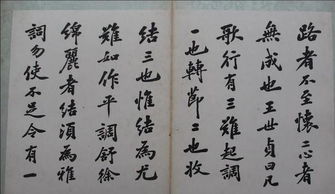 路者不至懷二心者
無成也王世貞曰凡
歌行有三難起調
一也轉節二也收
結三也惟結為尤
難如作平調舒徐
綿麗者結須為雅
詞勿使不足令有一